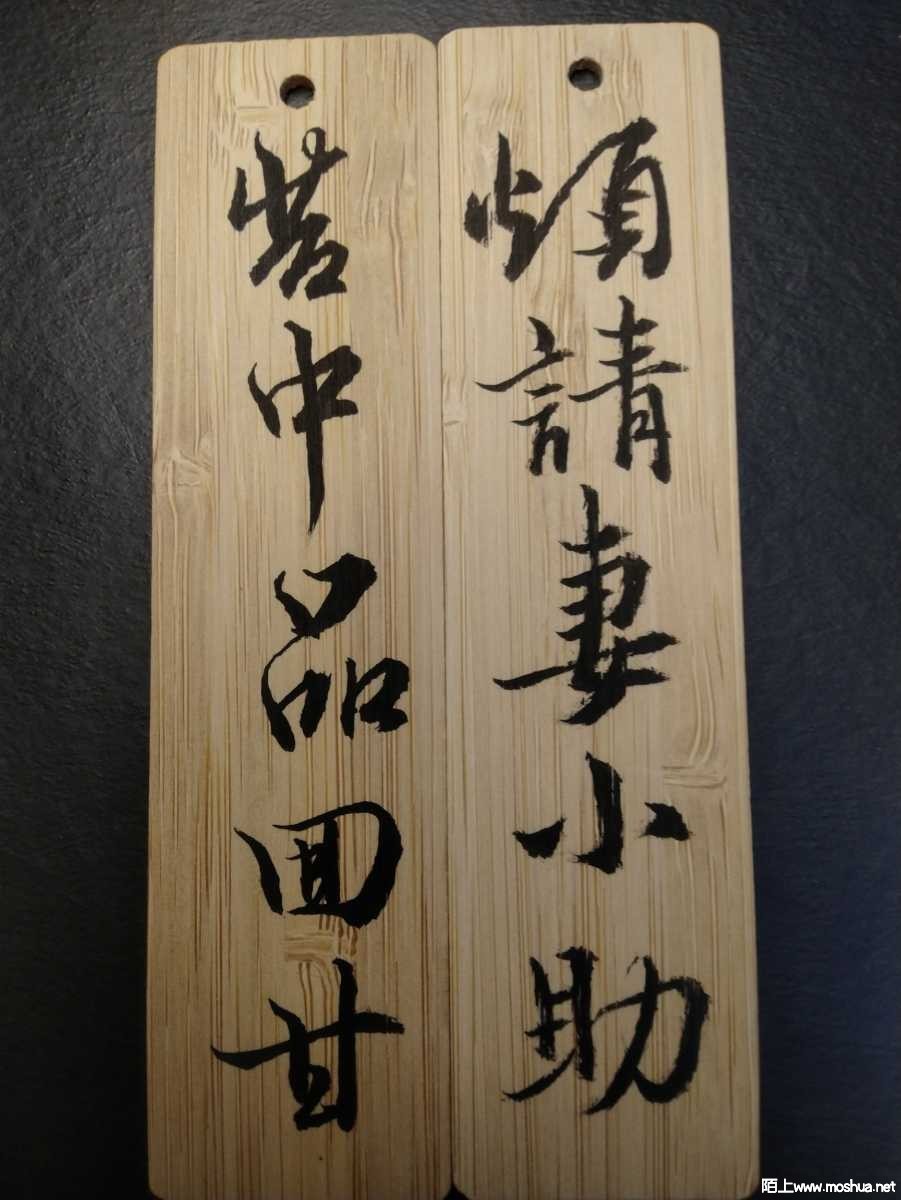 煩請妻小助
苦中品回甘
陌上www.moshua.net